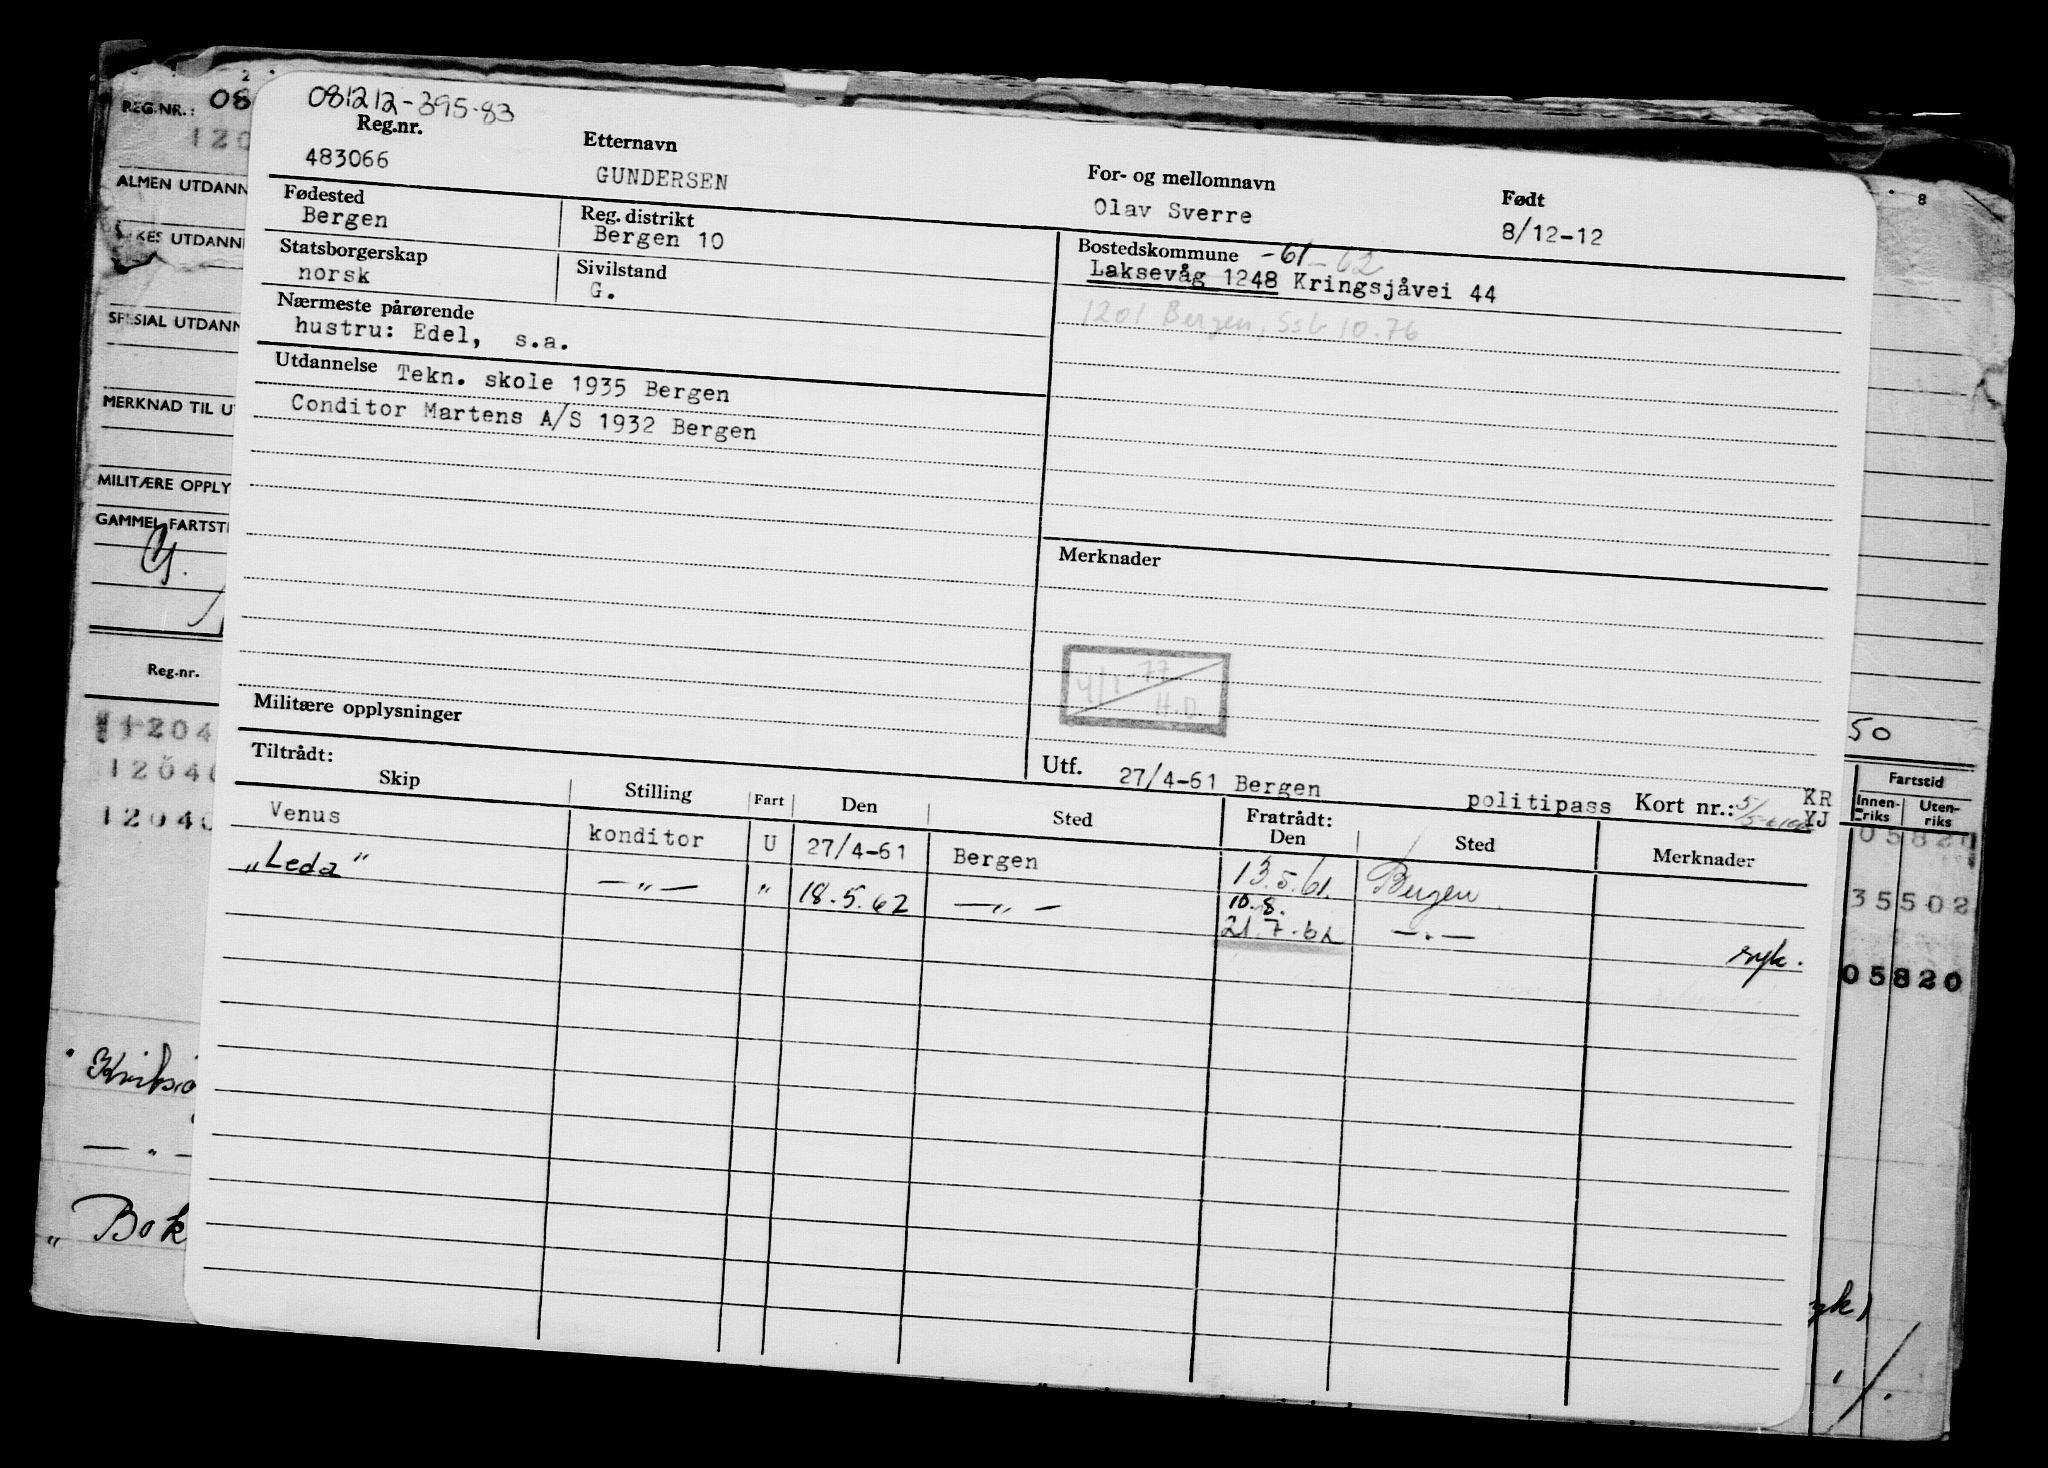 081212-395-83
Reg.nr. Etternavn For- og mellomnavn Født
483066 GUNDERSEN Olav Sverre 8/12-12
Fødested Reg. distrikt Bostedskommune -61-62
Bergen Bergen 10 Laksevåg 1248 Kringsjåvei 44
Statsborgerskap Sivilstand 1201 Bergen, Ssb 10.76
norsk G.
Nærmeste pårørende
hustru: Edel, s.a.
Utdannelse Tekn. skole 1935 Bergen
Conditor Martens A/S 1932 Bergen
Merknader
4/1-77
H.D
Militære opplysninger
Utf. 27/4-61 Bergen politipass Kort nr.: KR
YJ
Tiltrådt: Fratrådt:
Skip Stilling Fart Den Sted Den Sted Merknader
Venus konditor U 27/4-61 Bergen 13.5.61. Bergen.
„Leda" —„— „ 18.5.62 —„— 10.8.
21.7.62 —.— syk.
REG.NR.: 08
120
ALMEN UTDANN
UTDANN
SPESIAL UTDANN
MERKNAD TIL U
MILITÆRE OPPLY
GAMMEL FARTST
G.
Reg.nr.
1204
12040
12040
— „ —
„ Bok
2
8
50
Fartstid
Innen-
riks
Uten-
riks
05820
35502
05820